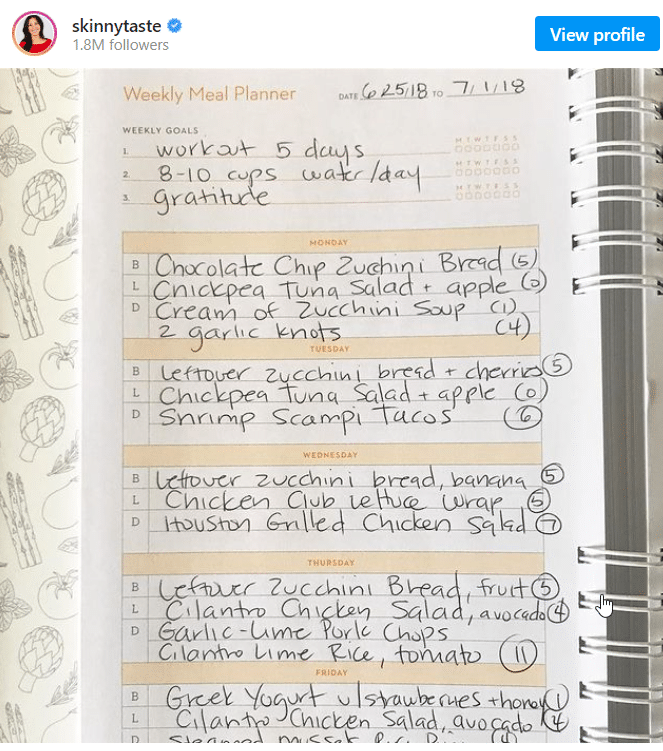 skinnytaste
1.8M followers
View profile
Weekly Meal Planner
DATE 6 25/18 TO 7/1/18
WEEKLY GOALS
M T W T F S S
1. workout 5 days
M T W T F S S
2. 8-10 cups water/day
M T W T F S S
3. gratitude
MONDAY
B Chocolate Chip Zucchini Bread (5)
L Chickpea Tuna Salad + apple (0)
D Cream of Zucchini Soup (1)
2 garlic knots (4)
TUESDAY
B Leftover zucchini bread + cherries (5)
L Chickpea Tuna Salad + apple (0)
D Shrimp Scampi Tacos (6)
WEDNESDAY
B Leftover zucchini bread, banana (5)
L Chicken Club Lettuce Wrap (5)
D Houston Grilled Chicken Salad (7)
THURSDAY
B Leftover Zucchini Bread, fruit (5)
L Cilantro Chicken Salad, avocado (4)
D Garlic-Lime Pork Chops
Cilantro Lime Rice, tomato (11)
FRIDAY
B Greek Yogurt w/strawberries + honey (1)
L Cilantro Chicken Salad, avocado (4)
D